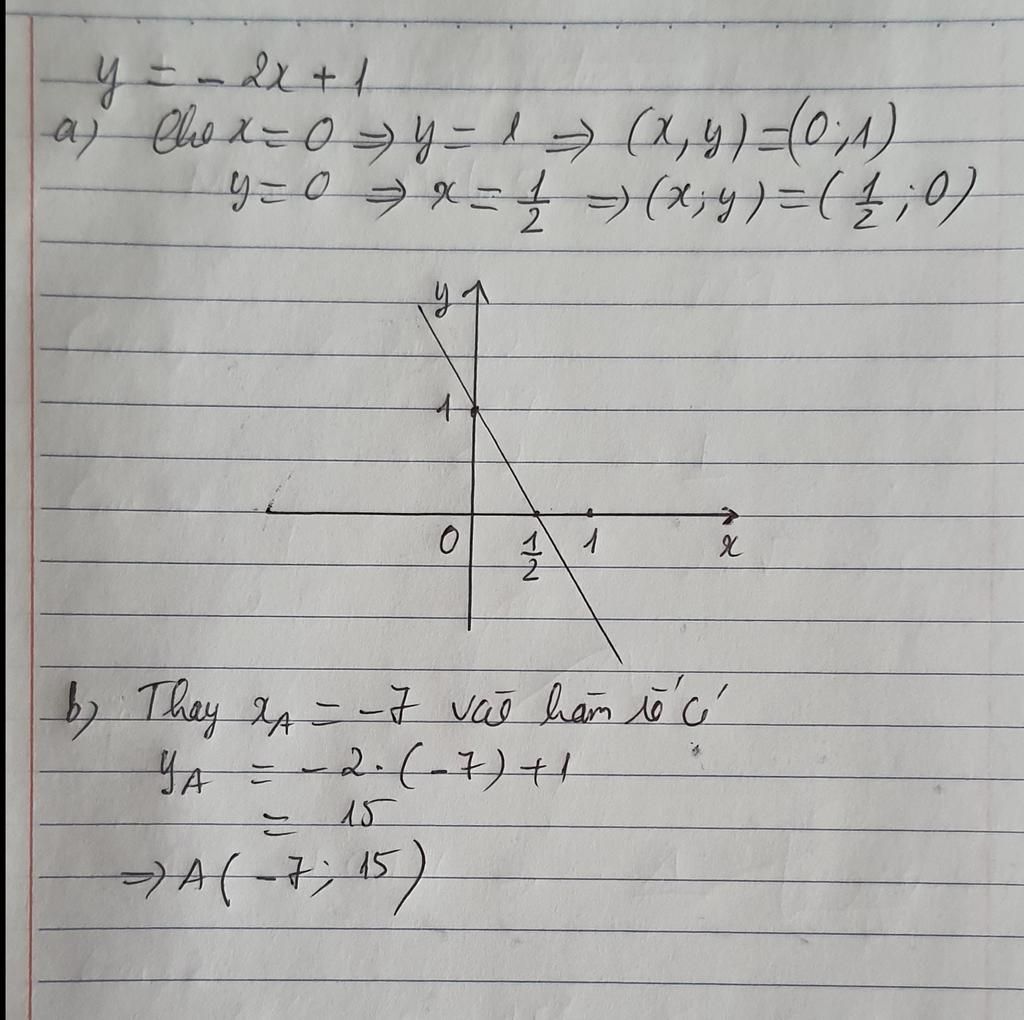 y = - 2x + 1
a) Cho x = 0 ⇒ y = 1 ⇒ (x, y) = (0; 1)
y = 0 ⇒ x = 1/2 ⇒ (x; y) = (1/2; 0)
y
1
0 1/2 1 x
b) Thay x_A = -7 vào hàm số có
y_A = -2 . (-7) + 1
= 15
⇒ A(-7; 15)